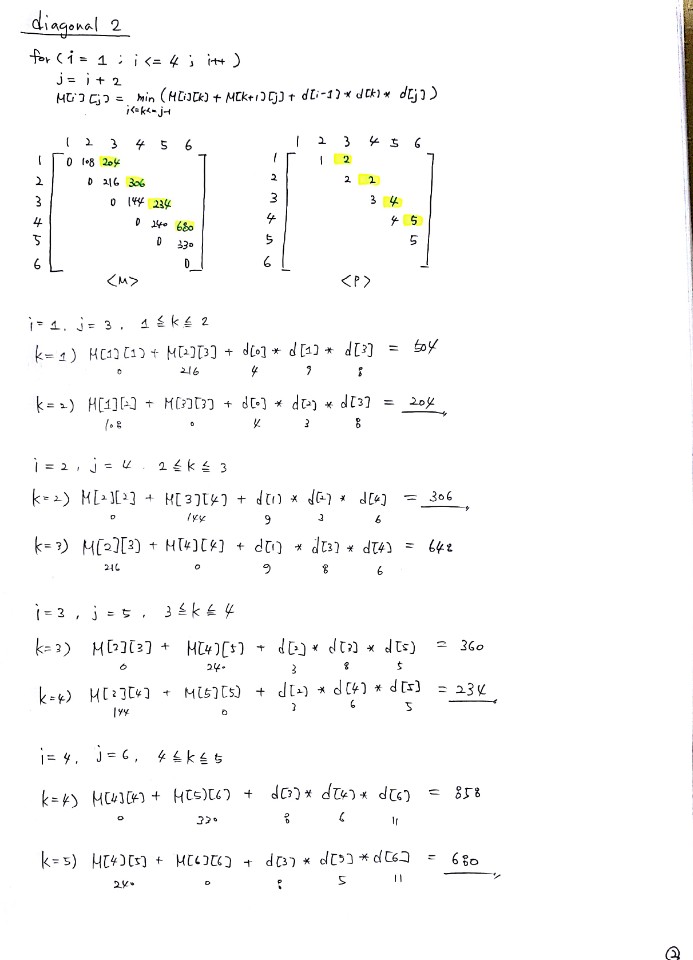 diagonal 2
for ( i = 1 ; i <= 4 ; i++ )
j = i + 2
M[i][j] = min ( M[i][k] + M[k+1][j] + d[i-1] * d[k] * d[j] )
i<=k<=j-1
1 2 3 4 5 6
1 0 108 204
2 0 216 306
3 0 144 234
4 0 240 680
5 0 330
6 0
<M>
1 2 3 4 5 6
1 1 2
2 2 2
3 3 4
4 4 5
5 5
6
<P>
i = 1, j = 3, 1 ≦ k ≦ 2
k=1) M[1][1] + M[2][3] + d[0] * d[1] * d[3] = 504
0 216 4 9 8
k=2) M[1][2] + M[3][3] + d[0] * d[2] * d[3] = 204
108 0 4 3 8
i = 2, j = 4. 2 ≦ k ≦ 3
k=2) M[2][2] + M[3][4] + d[1] * d[2] * d[4] = 306
0 144 9 3 6
k=3) M[2][3] + M[4][4] + d[1] * d[3] * d[4] = 648
216 0 9 8 6
i = 3, j = 5, 3 ≦ k ≦ 4
k=3) M[3][3] + M[4][5] + d[2] * d[3] * d[5] = 360
0 240 3 8 5
k=4) M[3][4] + M[5][5] + d[2] * d[4] * d[5] = 234
144 0 3 6 5
i = 4, j = 6, 4 ≦ k ≦ 5
k=4) M[4][4] + M[5][6] + d[3] * d[4] * d[6] = 858
0 330 8 6 11
k=5) M[4][5] + M[6][6] + d[3] * d[5] * d[6] = 680
240 0 8 5 11
②